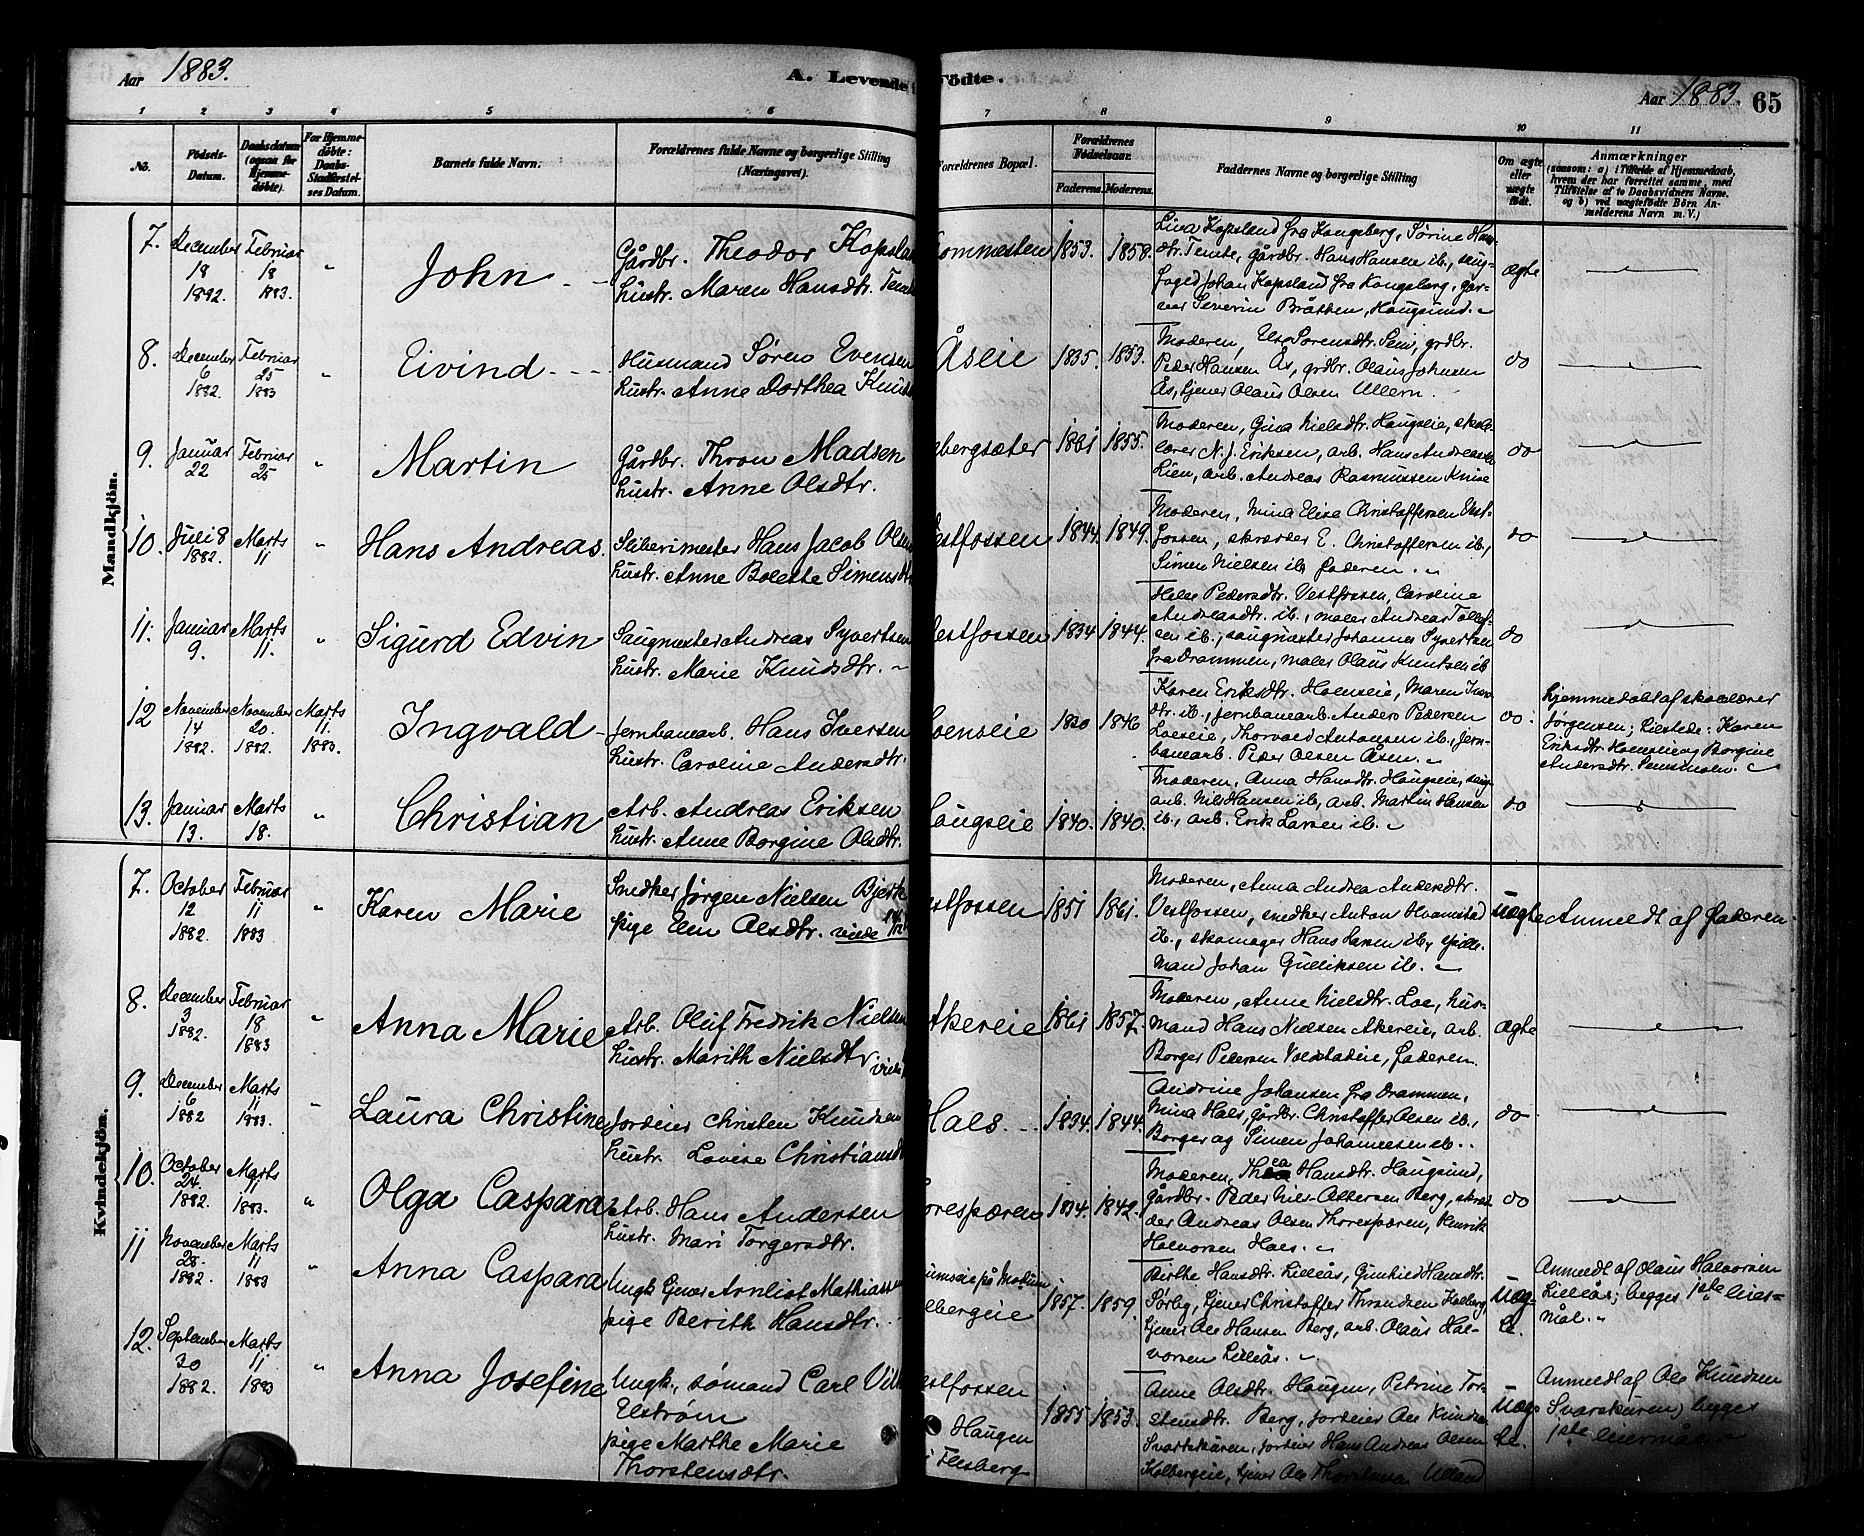 Aar 1883.
A. Levende Fødte.
Aar 1883. 65
1 2 3 4 5 6 7 8 9 10 11
No.
Fødsels-
Datum.
Daabsdatum
(ogsaa for
Hjemme-
døbte).
For Hjemme-
døbte:
Daabs-
Stadfæstel-
ses Datum.
Barnets fulde Navn.
Forældrenes fulde Navne og borgerlige Stilling
(Næringsvei).
Forældrenes Bopæl.
Forældrenes
Fødselsaar.
Faderens. Moderens.
Faddernes Navne og borgerlige Stilling
Om ægte
eller
uægte
født.
Anmærkninger
(saasom: a) i Tilfælde af Hjemmedaab,
hvem der har forrettet samme, med
Tilføielse af to Daabsvidners Navne.
og b) ved uægtefødte Børn An-
melderens Navn m. V.)
Mandkjön.
7. December 18 1882. Februar 18 1883. "
John
Gårdbr. Theodor Kopsland
hustr. Maren Hansdtr.
1853. 1858.
Lina Kopsland fra Kongsberg, Sørine Hans-
dtr. Temte, gårdbr. Hans Hansen ib., saug-
foged Johan Kopsland fra Kongsberg, gar-
ver Severin Bråtten, Haugsund.
ægte
8. December 6 1882. Februar 25 1883 "
Eivind
Husmand Søren Evensen
hustr. Anne Dorthea
Åseie
1835. 1853.
Moderen, Else Sørensdtr. Sem, grdbr.
Peder Hansen Ås, grdbr. Olaus Johnsen
Ås, tjener Olaus Olsen Ullern.
do
9. Januar 22 Februar 25 "
Martin
Gårdbr. Thron Madsen
hustr. Anne Olsdtr.
bergsæter
1861 1855.
Moderen, Gina Nielsdtr. Haugseie, skole-
lærer N. J. Eriksen, arb. Hans Andreas
Lien, arb. Andreas Rasmussen Knive
do
10. Juli 8 1882. Marts 11 "
Hans Andreas.
Sliberimester Hans Jacob Olsen
hustr. Anne Bolette Simensdtr
Vestfossen
1844. 1849.
Moderen, Mina Elise Christoffersen Vest-
fossen, skrædder E. Christoffersen ib.,
Simen Nielsen ib., faderen.
do
11. Januar 9. Marts 11. "
Sigurd Edvin
Saugmester Andreas Syvertsen
hustr. Marie Knudsdtr.
Vestfossen
1834 1844.
Pedersdtr. Vestfossen, Caroline
Andreasdtr. ib., maler Andreas Tollef-
sen ib., saugmester Johannes Syvertsen
fra Drammen, maler Olaus Knutsen ib
do
12 November 14 1882. November 20. 1882. Marts 11. 1883.
Ingvald
Jernbanearb. Hans Iversen
hustr. Caroline Andersdtr.
Hoenseie
1820 1846
Karen Eriksdtr. Hoenseie, Maren
dtr. ib., jernbanearb. Anders Pedersen
Loeseie, Thorvald Antonsen ib., jern-
banearb. Peder Olsen Åsen.
do.
Hjemmedøbt af skolelærer
Jørgensen; tilstede: Karen
Eriksdtr. Hoenseie og Borgine
Andersdtr. Semsmoen.
13. Januar 13. Marts 18. "
Christian
Arb. Andreas Eriksen
hustr. Anne Borgine Olsdtr.
Haugseie
1840. 1840.
Moderen, Anna Hansdtr. Haugseie, saug-
arb. Nils Hansen ib., arb. Martin Hansen
ib., arb. Erik Larsen ib.
do
Kvindekjön.
7. October 12 1882. Februar 11 1883 "
Karen Marie
Snedker Jørgen Nielsen
pige Elen Olsdtr. vide
Vestfossen
1851 1861.
Moderen, Anna Andrea Andersdtr.
Vestfossen, snedker Anton Hvamstad
ib., skomager Hans Larsen ib., spille-
mand Johan Gulliksen ib.
Uægte
Anmeldt af faderen.
8. December 3 1882. Februar 18 1883 "
Anna Marie
Arb. Oluf Fredrik Nielsen
hustr. Marith Nielsdtr vide
Akereie
1861 1857.
Moderen, Anne Nielsdtr. Loe, hus-
mand Hans Nielsen Akereie, arb.
Borger Pedersen, faderen.
ægte
9. December 6 1882 Marts 11 1883.
Laura Christine
Jordeier Christen Knudsen
hustr. Lovise
Hals
1834. 1844.
Andrine Johansen fra Drammen,
Mina Hals, gårdbr. Christoffer Olsen ib.,
Borger og Simen Johannesen ib.
do
10. October 24. 1882. Marts 11 1883. "
Olga Caspara
Arb. Hans Andersen
hustr. Mari Torgersdtr.
Thorespæren
1834. 1842.
Moderen, Thea Hansdtr. Haugsund,
gårdbr. Peder Nils Ottersen Berg, skræd-
der Andreas Olsen Thorespæren, Henrik
Halvorsen Hals.
do
11 November 28. 1882. Marts 11 1883 "
Anna Caspara
Ungk. tjener Arnliot Mathiassen
pige Berith Hansdtr.
på Modum
Kolbergeie
1857. 1859.
Birthe Hansdtr. Lilleås, Gunhild Hansdtr.
Sørby, tjener Christoffer Throndsen Kolberg,
tjener Ole Hansen Berg, arb. Olaus Hal-
vorsen Lilleås.
Uæg-
te.
Anmeldt af Olaus Halvorsen
Lilleås; begges 1ste leier-
mål.
12. September 30 1882. Marts 11 1883 "
Anna Josefine
Ungk., sømand Carl
Elstrøm
pige Marthe Marie
Thorstensdtr.
Vestfossen
Haugen
i Flesberg
1855 1853.
Anne Olsdtr. Haugen, Petrine Tor-
stensdtr. Berg, jordeier Ole Knudsen
Svartskuren, jordeier Hans Andreas Olsen
Kolbergeie, tjener Ole Thorstensen Ulland
Uæg-
te.
Anmeldt af Ole Knudsen
Svartskuren; begges
1ste leiermål